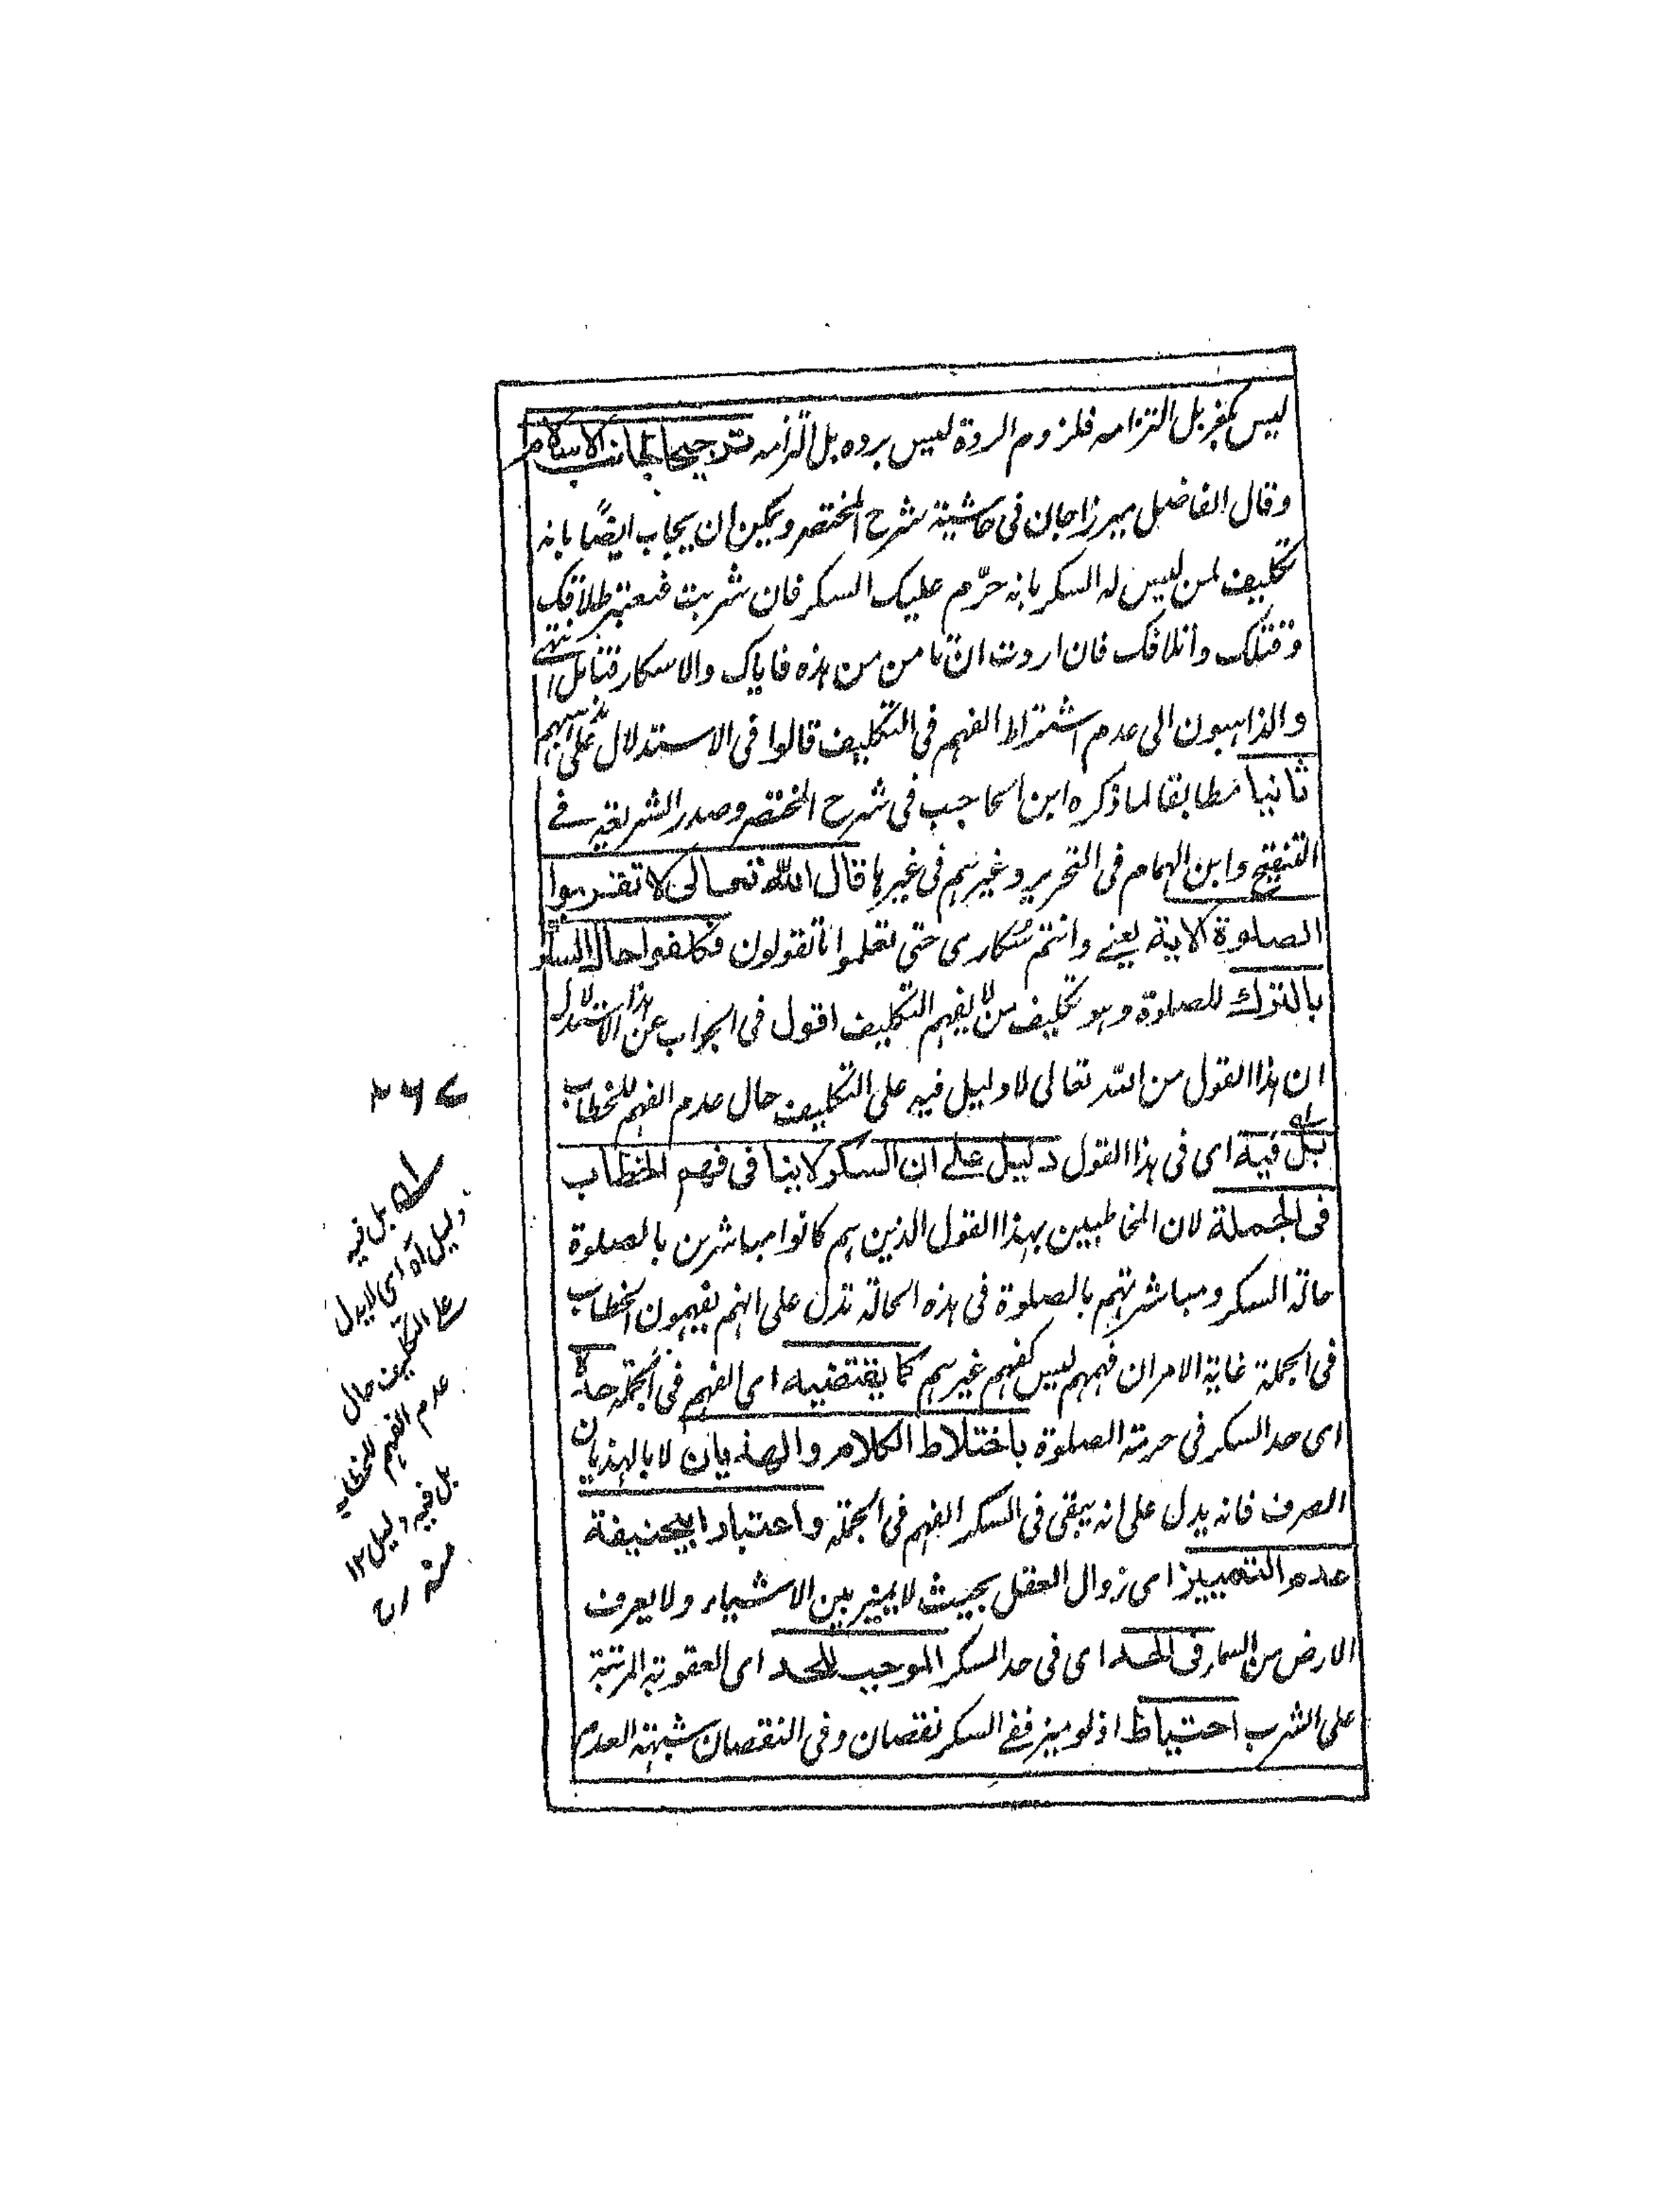 ليس بكفر بل التزامه فلزوم الردة ليس برده بل التزامه ترجيحا لجانب الاسلام
وقال الفاضل ميرزا جان فى حاشية شرح المختصر ويمكن ان يجاب ايضًا بانه
تكليف لمن ليس له السكر بانه حرّم عليك السكر فان شربت فيعتبر طلاقك
وقتلك واتلافك فان اردت ان تامن من هذه فاياك والاسكار فتامل انتهى
والذاهبون الى عدم اشتراط الفهم فى التكليف قالوا فى الاستدلال على مذهبهم
ثانيا مطابقا لما ذكره ابن الحاجب فى شرح المختصر وصدر الشريعة فے
التنقيح وابن الهمام فى التحرير وغيرهم فى غيرها قال الله تعالى لا تقربوا
الصلوة الاية يعنے وانتم سُكارى حتى تعلموا ما تقولون فكلفوا حال السكر
بالترك للصلوة وهو تكليف من لا يفهم التكليف اقول فى الجواب عن هذا الاستدلال
ان هذا القول من الله تعالى لا دليل فيه على التكليف حال عدم الفهم للخطاب
بل فيه اى فى هذا القول دليل على ان السكر لا ينافى فهم الخطاب
فى الجملة لان المخاطبين بهذا القول الذين هم كانوا مباشرين بالصلوة
حالة السكر ومباشرتهم بالصلوة فى هذه الحالة تدل على انهم يفهمون الخطاب
فى الجملة غاية الامر ان فهمهم ليس كفهم غيرهم كما يقتضيه اى الفهم فى الجملة حده
اى حد السكر فى حرمة الصلوة باختلاط الكلام والهذيان لا بالهذيان
الصرف فانه يدل على انه يبقى فى السكر الفهم فى الجملة واعتبار ابيحنيفة
عدم التمييز اى زوال العقل بحيث لا يميز بين الاشياء ولا يعرف
الارض من السماء فى الحد اى فى حد السكر الموجب للحد اى العقوبة المرتبة
على الشرب احتياط اذ لو ميز ففے السكر نقصان وفى النقصان شبهة العدم
بل فيه
دليل آه اى لا يدل
على التكليف حال
عدم الفهم للخطاب
بل فيه دليل ١٢
منه رح